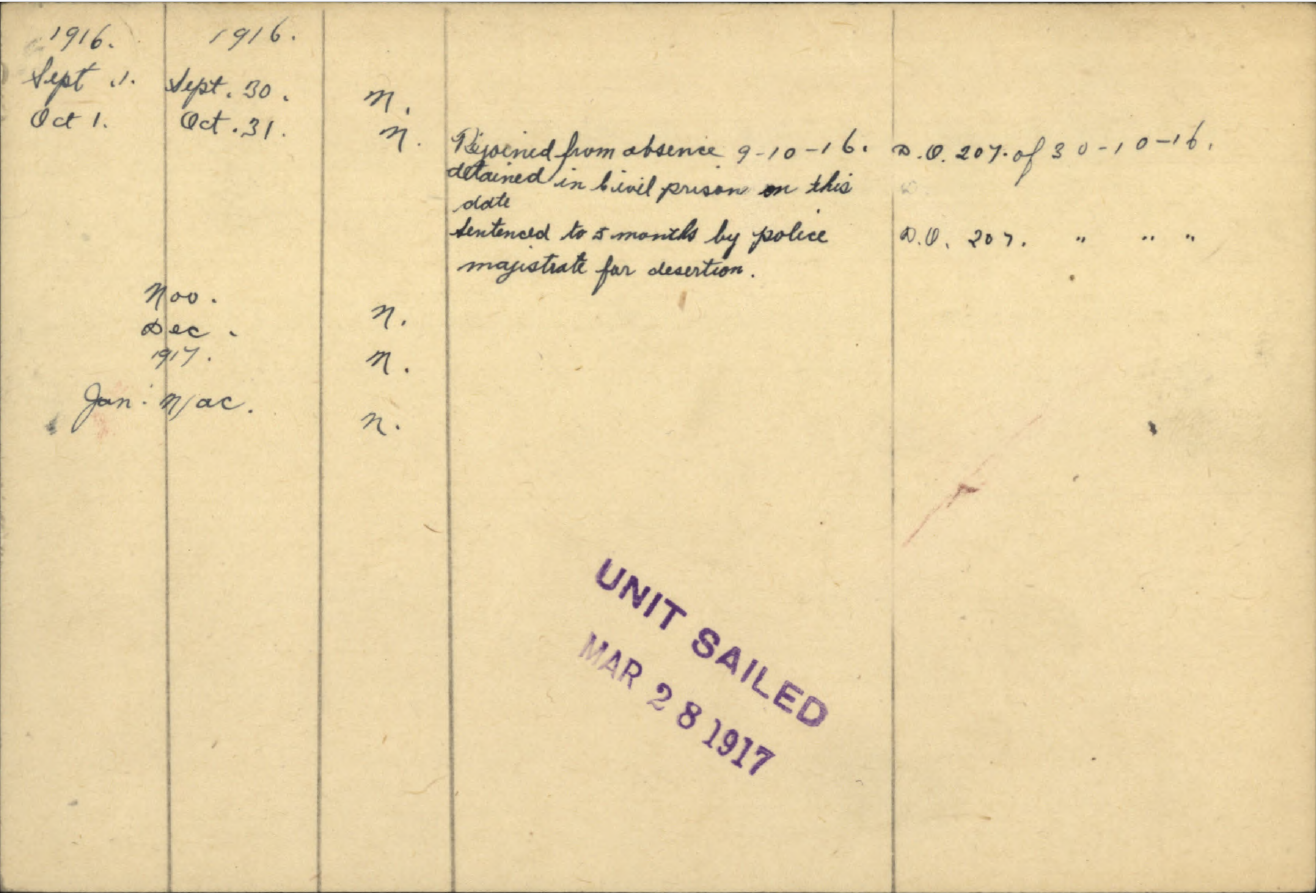 1916. 1916.
Sept .1. Sept. 30. N.
Oct 1. Oct. 31. N. Rejoined from absence 9-10-16. D.O. 207. of 30-10-16.
detained in Civil prison on this
date
Sentenced to 5 months by police D.O. 207. " " "
majistrate for desertion.
Nov. N.
Dec. N.
1917.
Jan. N.
UNIT SAILED
MAR 28 1917